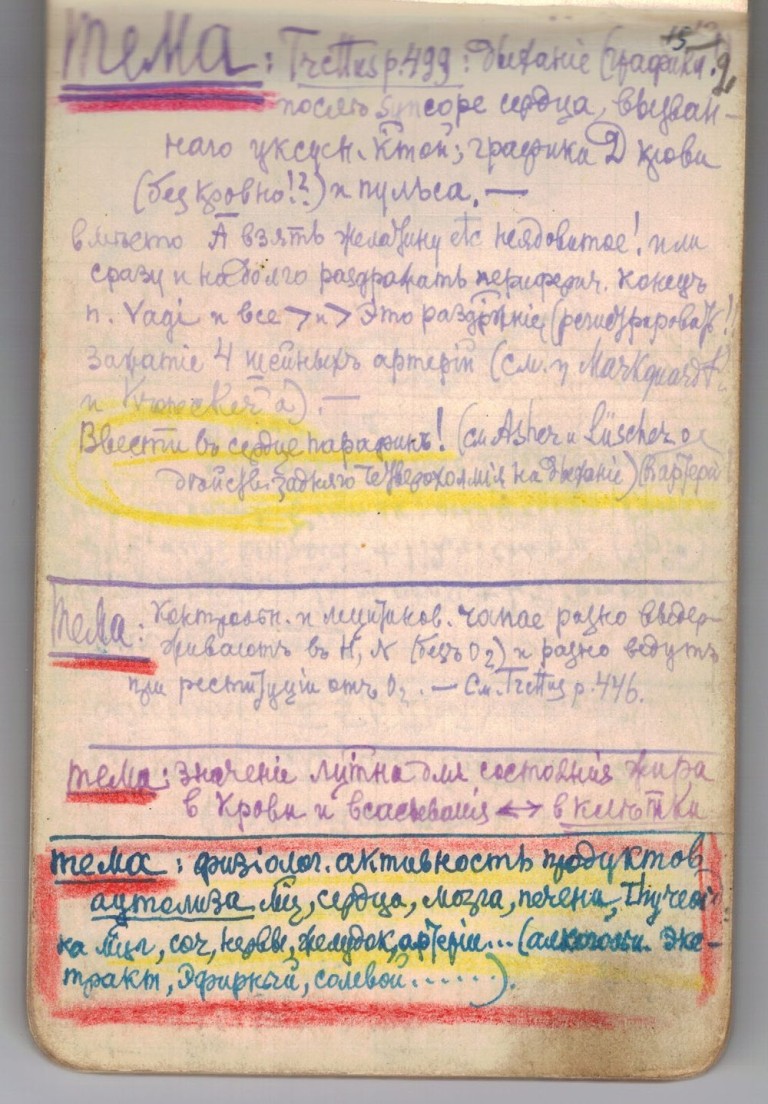 Тема: Trettus p. 499: дыханіе (графика!)
послѣ Syncope сердца, вызван-
наго уксусн. к̅той; графика D крови
(безкровно!?) и пульса. —
вмѣсто A̅ взять желатину etc неядовитое! или
сразу и надолго раздражать периферич. конецъ
n. Vagi и все > и > Это раздрженіе (регистрировать!!
Зажатіе 4 шейныхъ артерій (см. у Markquardt
и Kronecker'a). —
Ввести въ сердце парафинъ! (см Asher и Lüscher
дѣйств. задняго четверохолмія на дыханіе) (въ артеріи
Тема: Контрактн. и равно выдер-
живаютъ въ H, N (безъ O2) и равно ведутъ
при реституціи отъ O2. — См. Trettus p. 446.
тема: значеніе для состоянія жира
в крови и всасыванія ↔ в клѣтки
тема: физіолог. активность продуктов
аутолиза сердца, мозга, печени,
соч, нервы, желудок, артеріи... (алкогольн. экс-
тракт, Эфирный, солевой......).